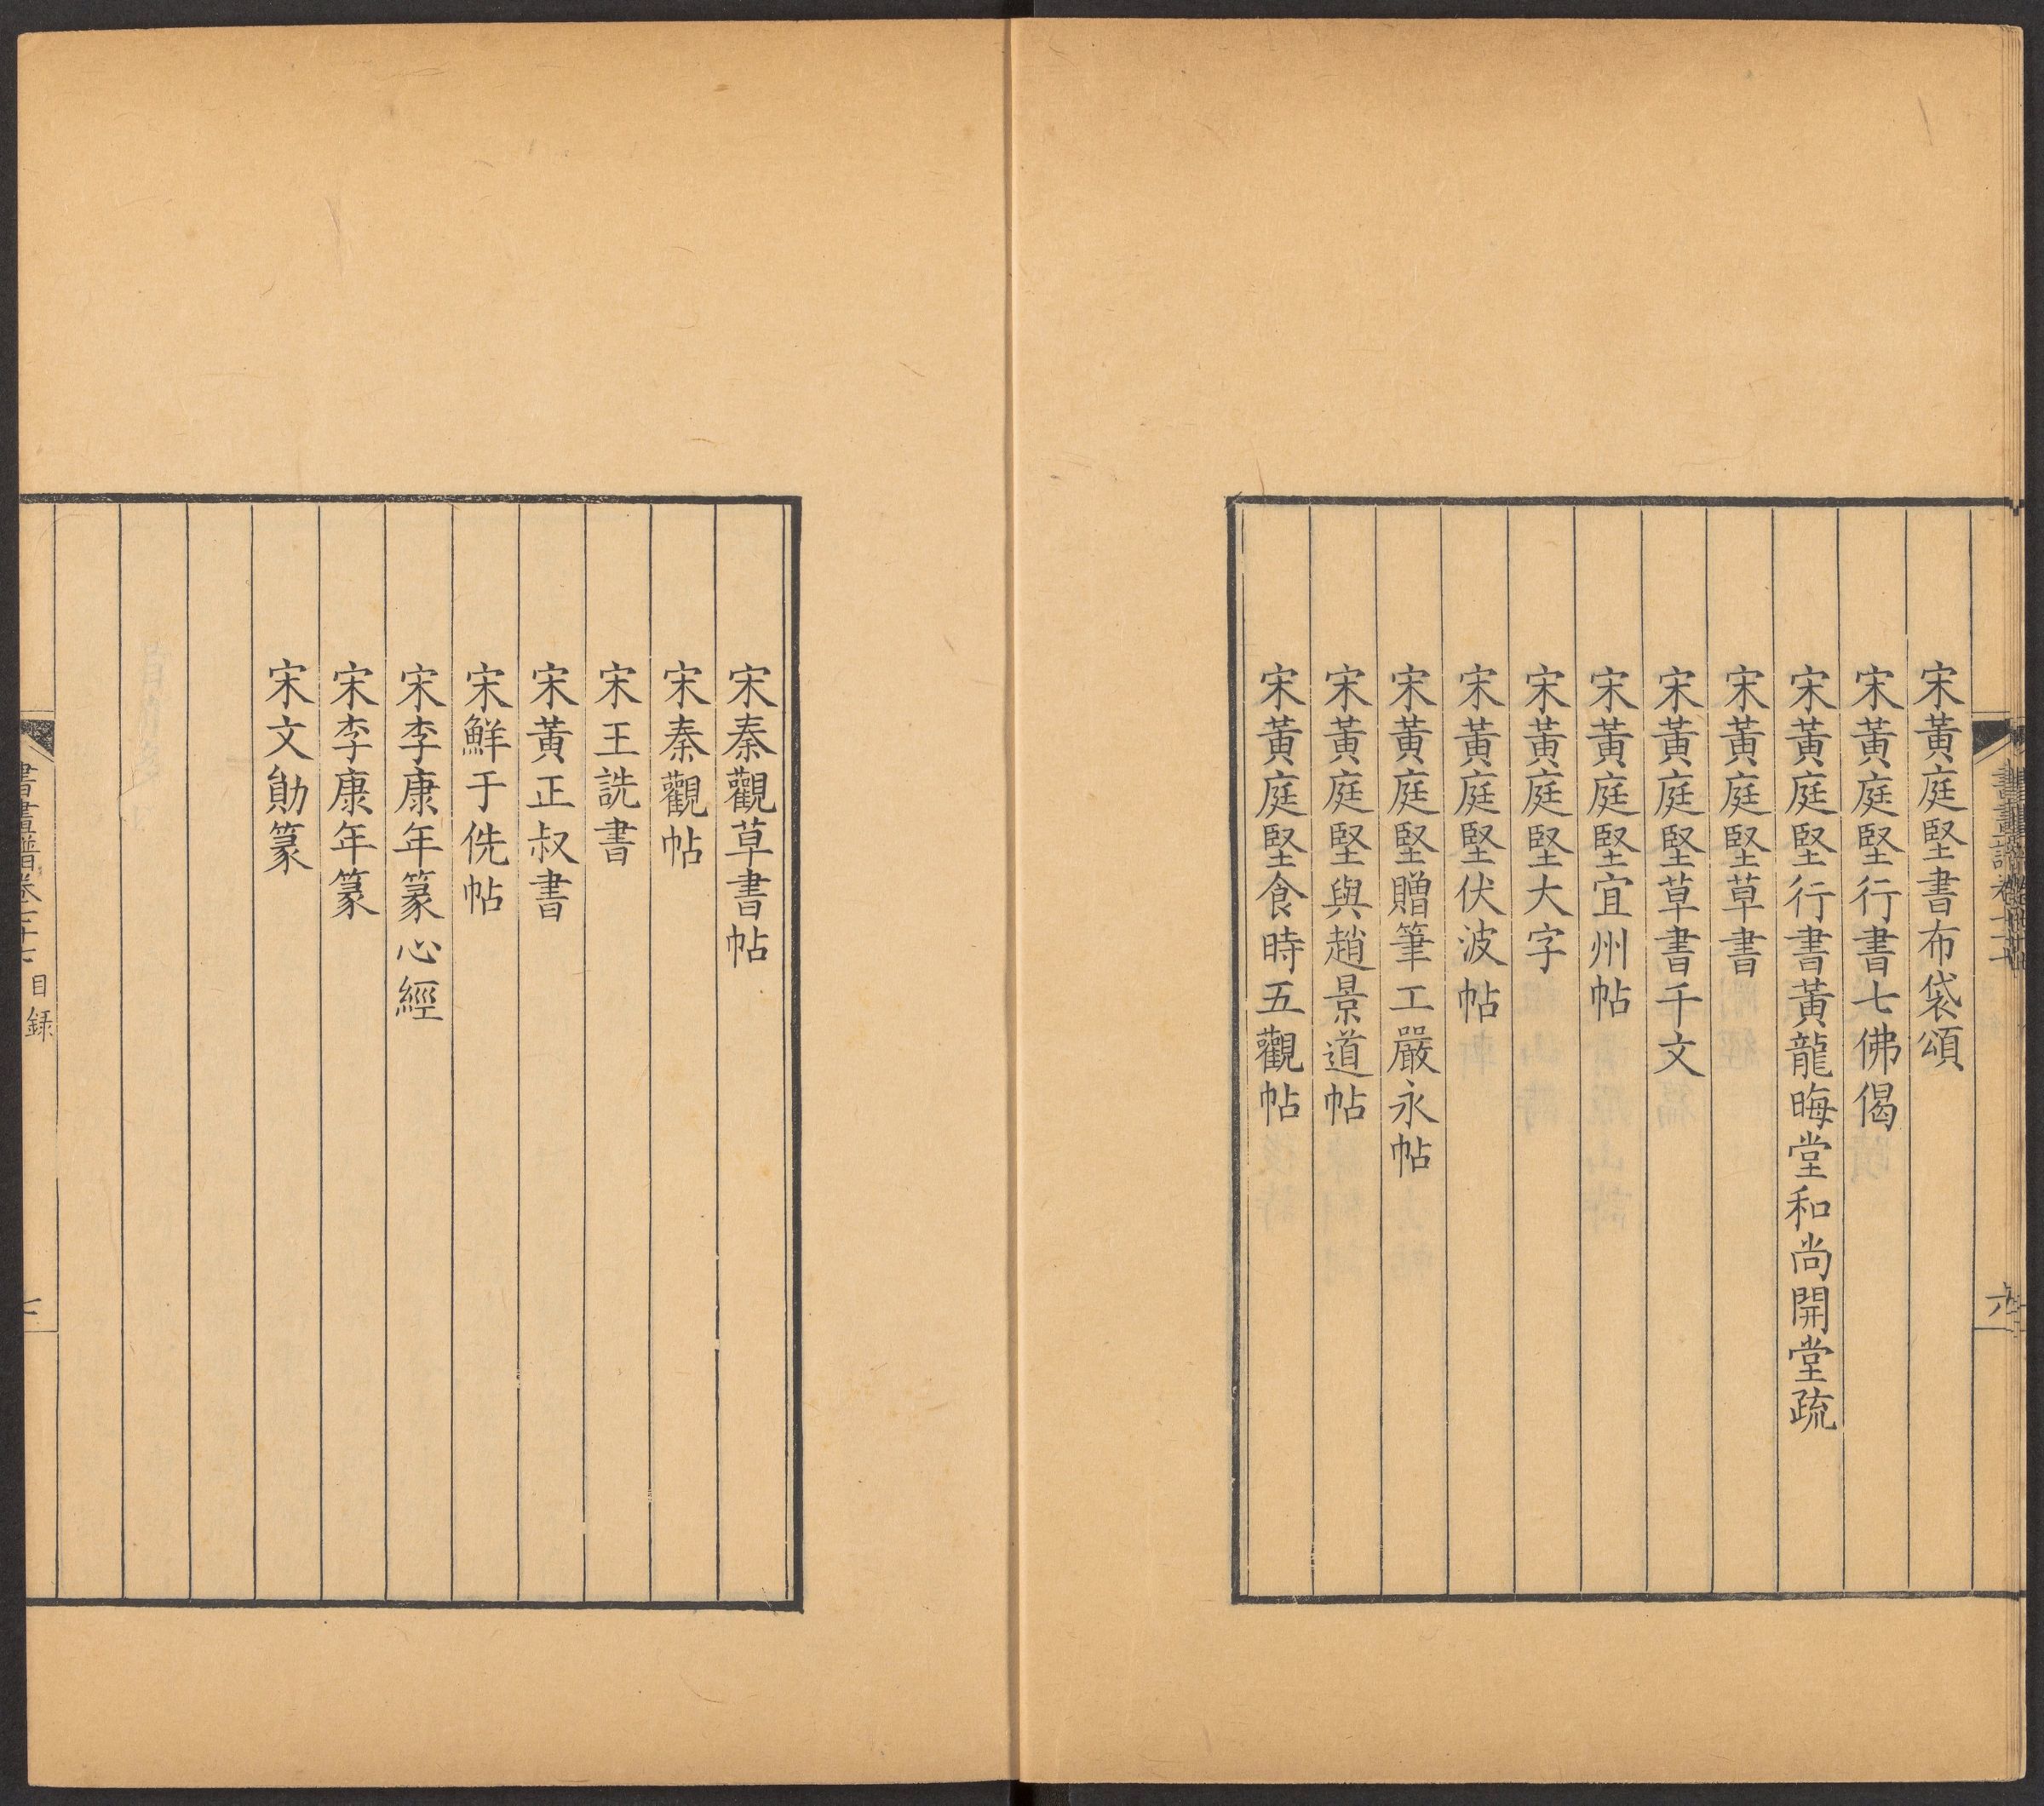 宋黃庭堅書布袋頌
宋黃庭堅行書七佛偈
宋黃庭堅行書黃龍晦堂和尚開堂疏
宋黃庭堅草書
宋黃庭堅草書千文
宋黃庭堅宜州帖
宋黃庭堅大字
宋黃庭堅伏波帖
宋黃庭堅贈筆工嚴永帖
宋黃庭堅與趙景道帖
宋黃庭堅食時五觀帖
六
宋秦觀草書帖
宋秦觀帖
宋王詵書
宋黃正叔書
宋鮮于侁帖
宋李康年篆心經
宋李康年篆
宋文勛篆
目錄